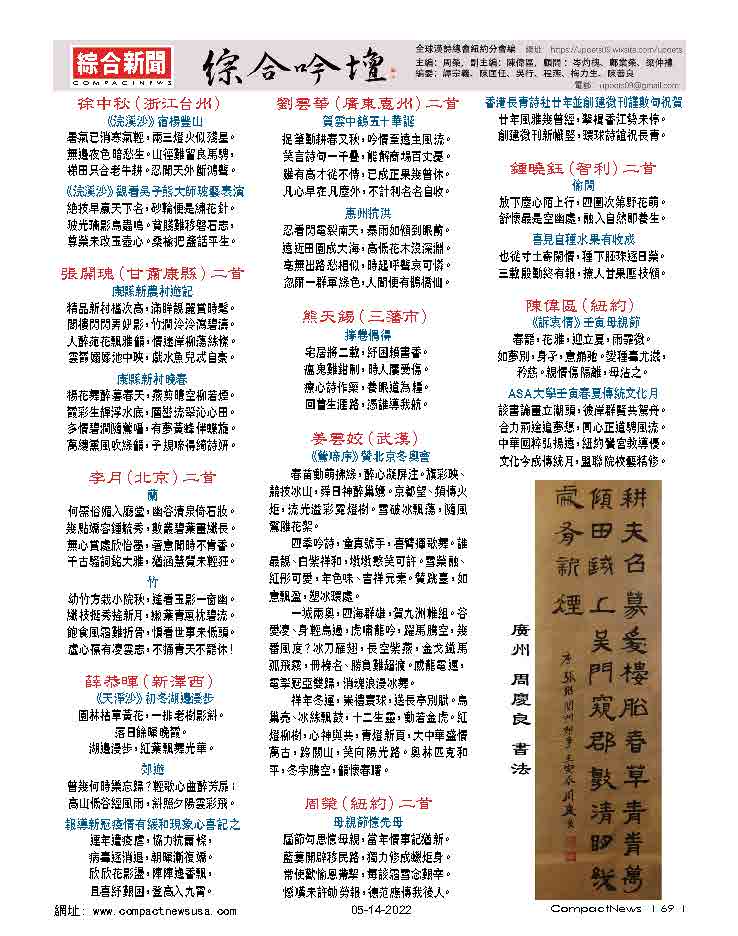 綜合新聞
綜合吟壇
全球漢詩總會紐約分會編 網址: https://upoets09.wixsite.com/upoets
主編:周榮,副主編:陳偉區,顧問:岑灼槐、鄭棠榮、梁仲禮
編委:譚宗義、陳匡任、吳行、程燕、梅力生、陳善良
電郵: upoets09@gmail.com
徐中秋(浙江台州)
《浣溪沙》宿楊豐山
暑氣已消寒氣輕,兩三燈火似殘星。
無邊夜色暗愁生。山徑難留良馬騎,
梯田只合老牛耕。忍聞天外斷鴻聲。
《浣溪沙》觀看吳子熊大師玻藝表演
絶技早贏天下名,砂輪便是繡花針。
玻光瑜影鳥蟲鳴。貧賤難移磐石志,
尊榮未改玉壺心。桑榆把盞話平生。
張開瑰(甘肅康縣)二首
康縣新農村遊記
精品新村檔次高,滿眸靚麗賞時髦。
閣樓閃閃弄妍影,竹澗泠泠瀉碧濤。
人醉苑花飄雅韻,情迷岸柳蕩絲絛。
雲霞嫋嫋池中映,戲水魚兒式自豪。
康縣新村晚春
楊花舞醉暮春天,燕剪晴空柳若煙。
霞彩生輝浮水底,層巒流翠沁心田。
多情碧澗隨鶯唱,有夢黃蜂伴蝶旋。
萬縷熏風吹綠韻,子規啼得綺詩妍。
李月(北京)二首
蘭
何需俗媚入廳堂,幽谷清泉倚石妝。
幾點嬌容鍾毓秀,數叢碧葉畫纖長。
無心賞處欣怡墨,着意聞時不肯香。
千古騷詞銘大雅,猶涵慧質未輕狂。
竹
幼竹方栽小院秋,遙看玉影一窗幽。
纖枝挺秀搖新月,嫩葉青蔥枕碧流。
飽食風霜難折骨,慣看世事未低頭。
虛心葆有凌雲志,不捅青天不罷休!
薛恭暉(新澤西)
《天淨沙》初冬湖邊漫步
園林枯草黃花,一排老樹影斜。
落日餘暉晚霞。
湖邊漫步,紅葉飄舞光華。
郊遊
曾幾何時樂忘歸?輕歌心曲醉芳扉:
高山低谷經風雨,斜照夕陽雲彩飛。
報導新冠疫情有緩和現象心喜記之
連年遭疫虐,協力抗蕭條,
病毒逐消退,朝暉漸復嬌。
欣欣花影邐,陣陣逸香飄,
且喜紓艱困,登高入九霄。
劉雲華(廣東惠州)二首
賀雲中鶴五十華誕
捉筆勤耕春又秋,吟情至遠主風流。
笑言詩句一千疊,能解商場百丈憂。
雖有高才從不悖,已成正果幾曾休。
凡心早在凡塵外,不計利名名自收。
惠州抗洪
忍看閃電裂南天,暴雨如傾到眼前。
遠近田園成大海,高低花木沒深淵。
毫無出路愁相似,時起呼聲哀可憐。
忽爾一群軍綠色,人間便有鵲橋仙。
熊天錫(三藩市)
擁卷偶得
宅居將二載,紓困賴書香。
瘟鬼難鉗制,時人屢受傷。
療心詩作藥,養眼道為糧。
回首生涯路,憑誰導我航。
姜雲姣(武漢)
《鶯啼序》贊北京冬奧會
春苗動萌拂綠,醉心凝屏注。旗彩映、
競技冰山,舜日神醉巢鑊。京都望、頻傳火
炬,流光溢彩霓燈樹。雪破冰飄蕩,隨風
鴛雕花絮。
四季吟詩,童真號手,喜臂揮歌舞。誰
最靚、白紫祥和,墩墩憨笑可許。雪榮融、
紅彤可愛,年色味、吉祥元素。贊跳臺,如
意飄盈,塑冰環處。
一城兩奧,四海群雄,賀九洲離組。谷
愛凌、身輕鳥過,虎嘯龍吟,躍馬騰空,幾
番風度?冰刀雁翅,長空紫燕,金戈鐵馬
弧飛霧,冊榜名、勝負難超渡。威龍電運,
電掣冠亞雙歸,消魂浪漫冰舞。
祥年冬運,崇禮寰球,送長亭別賦。鳥
巢亮、冰絲飄鼓,十二生靈,動若金虎。紅
燈柳樹,心神與共,青燈新頁,大中華盛情
萬古,路關山,笑向陽光路。奧林匹克和
平,冬宇騰空,韻懷春曙。
周榮(紐約)二首
母親節憶先母
屆節匆思憶母親,當年情事記猶新。
藍蔞開辟移民路,獨力修成蠟炬身。
常使歡愉恩帶挈,每談霜雪念艱辛。
慨嘆未許劬勞報,德范應傳我後人。
香港長青詩社廿年並創建微刊謹數句祝賀
廿年風雅幾曾經,擊楫香江勢未停。
創建微刊新幟豎,環球詩誼祝長青。
鍾曉鈺(智利)二首
偷閒
放下塵心陌上行,四圍次第野花萌。
舒懷最是空幽處,融入自然即養生。
喜見自種水果有收成
也從寸土寄閒情,種下胚珠逐日榮。
三載殷勤終有報,撩人甘果壓枝傾。
陳偉區(紐約)
《訴衷情》壬寅母親節
春罷,花雅,迎立夏,雨霏微。
如夢別,身孑,意崩弛。變種毒尤滋,
矜慈。親情傷隔離,母沾之。
ASA大學壬寅春夏傳統文化月
談書論畫立潮頭,彼岸群賢共駕舟。
合力荊途追夢想,同心正道騁風流。
中華國粹弘揚遠,紐約黌宮教導優。
文化今成傳統月,盟聯院校藝精修。
廣州 周慶良 書法
耕夫召募愛樓船春草青青萬
頃田試上吳門窺郡數清明幾
處有新煙
網址:www.compactnewsusa.com
05-14-2022
CompactNews | 69 |